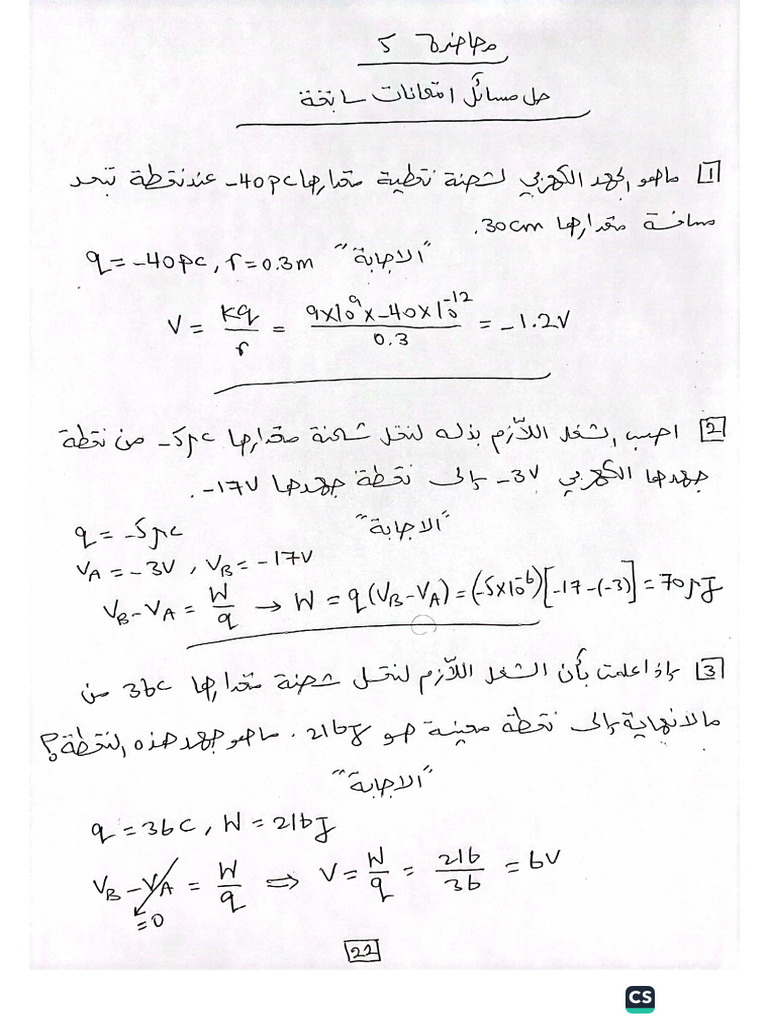 محاضرة 5
حل مسائل امتحانات سابقة
1 ماهو الجهد الكهربي لشحنة نقطية مقدارها -40pc عند نقطة تبعد
مسافة مقدارها 30cm.
"الاجابة"
q = -40pc, r = 0.3m
V = kq/r = 9x10⁹x-40x10⁻¹²/0.3 = -1.2V
2 احسب الشغل اللازم بذله لنقل شحنة مقدارها -5μc من نقطة
جهدها الكهربي -3V إلى نقطة جهدها -17V.
"الاجابة"
q = -5μc
VA = -3V, VB = -17V
VB - VA = W/q → W = q(VB - VA) = (-5x10⁻⁶)[-17-(-3)] = 70μJ
3 إذا علمت بأن الشغل اللازم لنقل شحنة مقدارها 36c من
مالانهاية إلى نقطة معينة هو 216J. ماهو جهد هذه النقطة؟
"الاجابة"
q = 36c, W = 216J
VB - VA = W/q ⇒ V = W/q = 216/36 = 6V
=0
22
CS